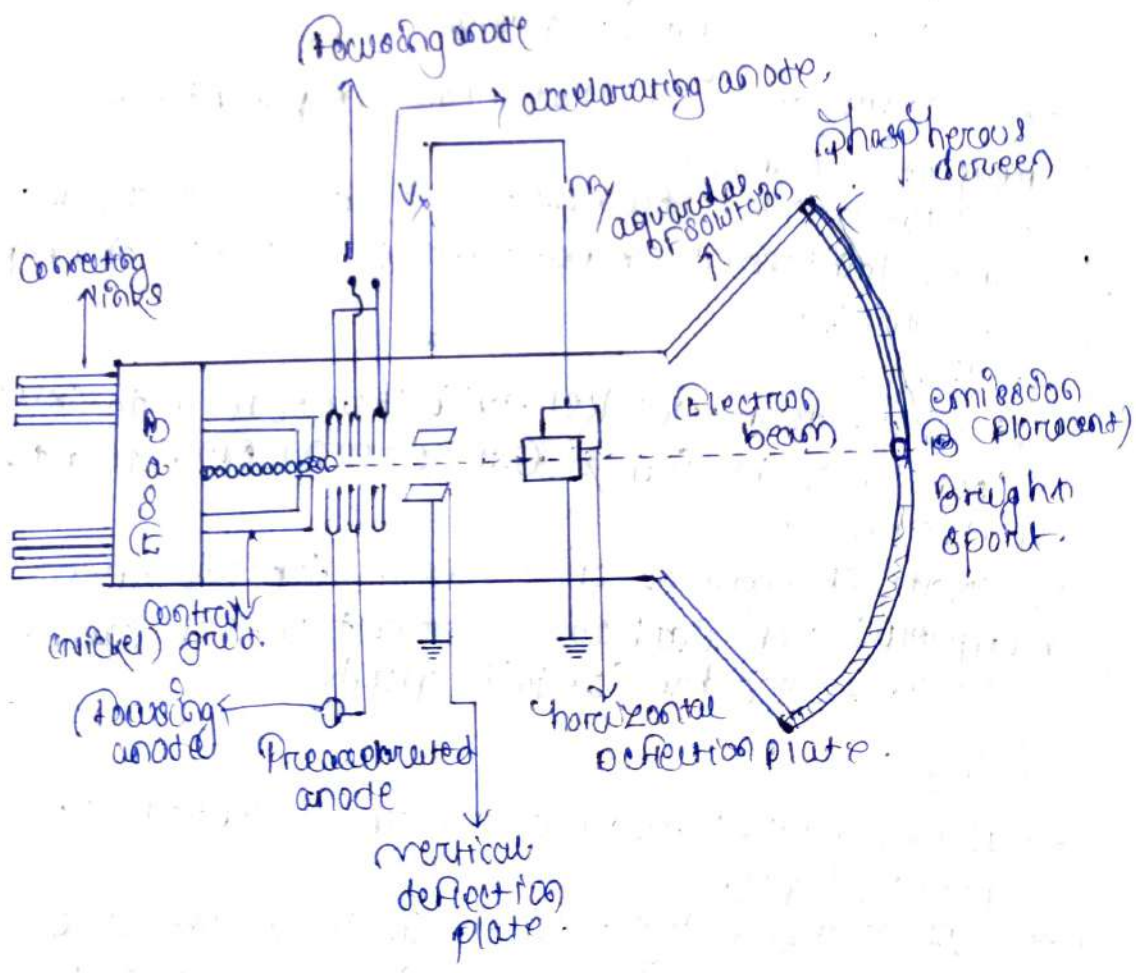 Focusing anode
accelarating anode,
Phaspherous
screen
Vx
Vy
aquardas
of solution
Connecting
links
B
a
s
E
Electron
beam
emission
(Plorocent)
Bright
sport.
control
(nickel) grid.
Focusing
anode
Preaccelarated
anode
horizontal
Deflection plate.
vertical
deflection
plate.